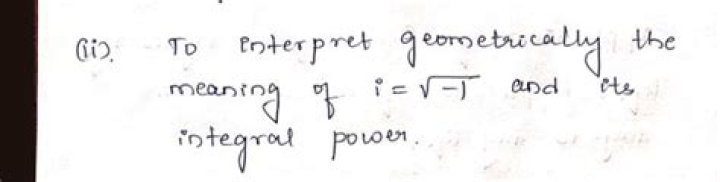 (ii). To interpret geometrically the
meaning of i = √-1 and its
integral power.